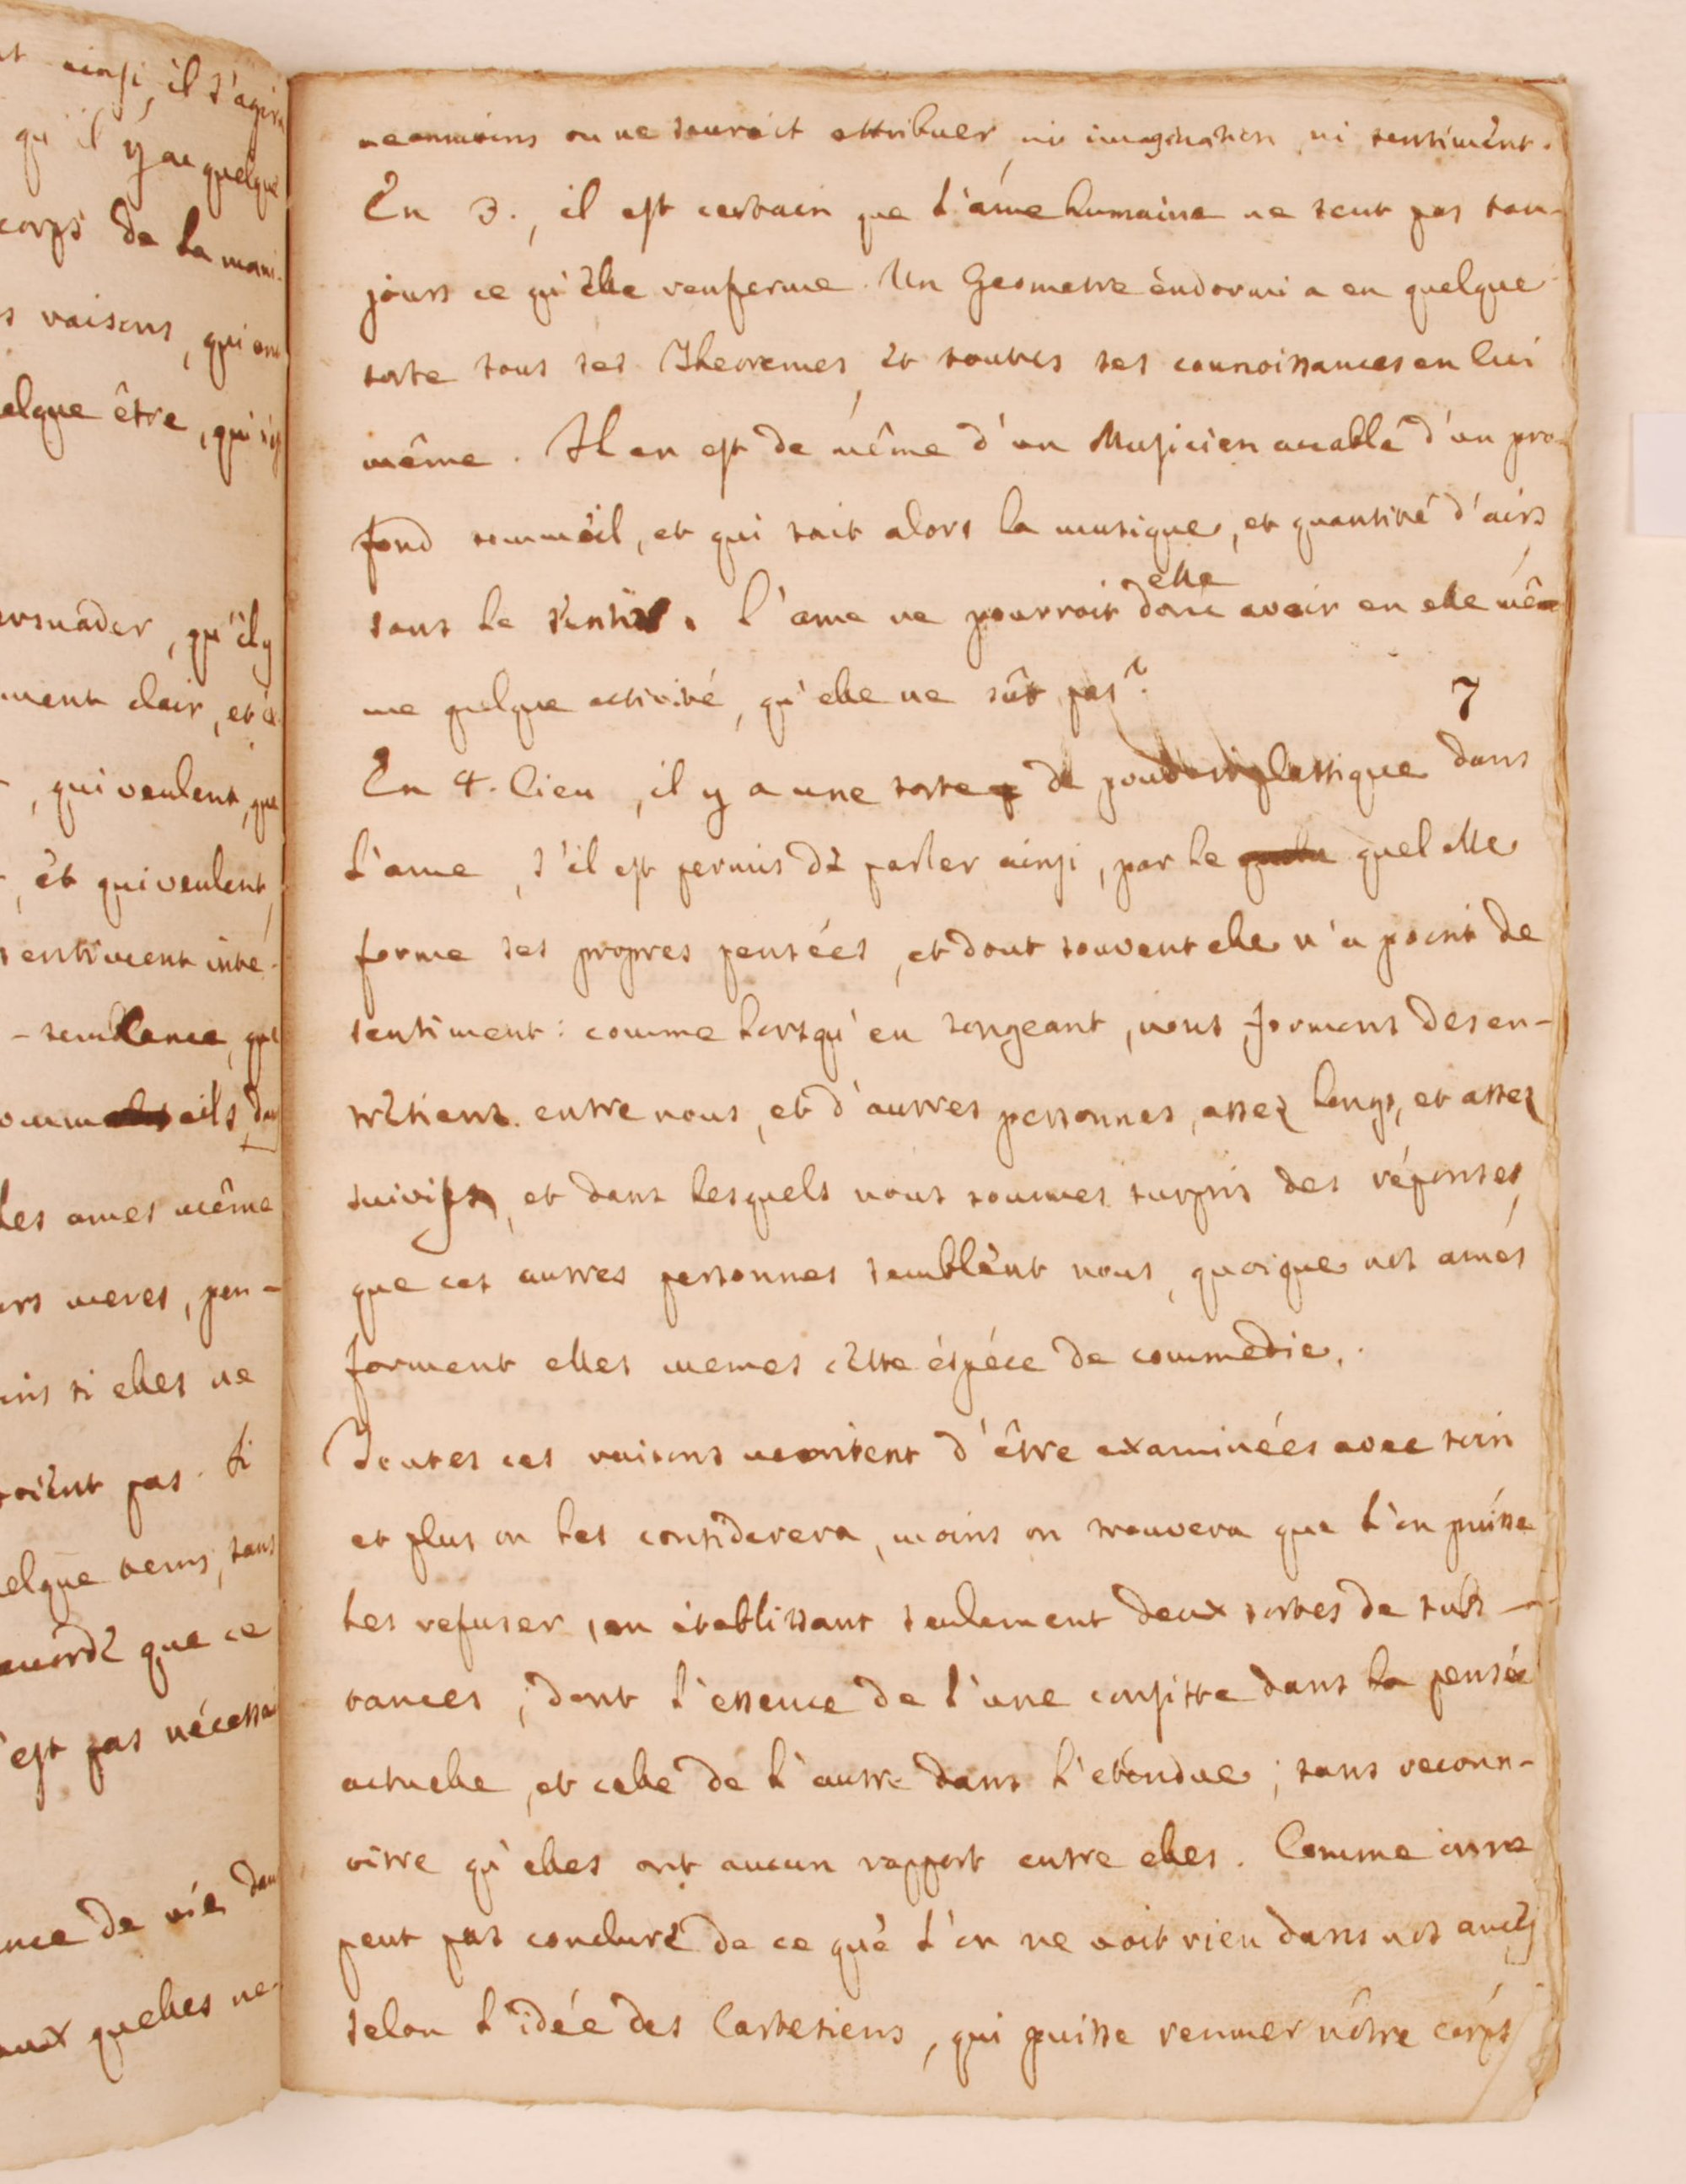 nt ainsi, il s'agira
qu'il y ae quelque
corps de la mani-
s raisons, qui ont
elque être, qui s'est
ersuader, qu'il y
ment clair, et à
, qui veulent, que
, èt qui veulent,
sentiment inté-
-semblance, que
dans
les ames même
urs meres, pen-
ins si elles ne
roiènt pas. Si
elque tems, sans
acorde que ce
'est pas nécessai
ance de vie, dans
aux quelles ne-
neanmoins on ne sauroit attribuer ni imagination, ni sentiment.
En 3., il est certain que l'ame humaine ne sent pas tou-
jours ce qu'elle renferme. Un Geometre èndormi a en quelque
sorte tous ses Theoremes, et toutes ses connoissances en lui
même. Il en est de même d'un Musicien accablé d'un pro-
fond sommeil, et qui sait alors la musique, et quantité d'airs,
sans le sentir. L'ame ne pourroit elle donc avoir en elle mê-
me quelque activité, qu'elle ne sût pas?
7
En 4. lieu, il y a une sorte de pouvoir plastique dans
l'ame, s'il est permis de parler ainsi, par le quel elle
forme ses propres pensées, et dont souvent elle n'a point de
sentiment: comme lorsqu'en songeant, nous formons des en-
tretiens entre nous, et d'autres personnes, assez longs, et assez
suivis, et dans lesquels nous sommes surpris des réponses,
que ces autres personnes semblènt nous, quoique nos ames
forment elles memes cette éspéce de commedie.
Toutes ces raisons meritent d'être examinées avec soin
et plus on les considerera, moins on trouvera que l'on puisse
les refuser, en établissant seulement deux sortes de subs-
tances; dont l'essence de l'une consiste dans la pensée
actuelle, et celle de l'autre dans l'etendue; sans reconn-
oitre qu'elles ont aucun rapport entre elles. Comme on ne
peut pas conclure de ce que l'on ne voit rien dans nos ames
selon l'idée des Cartesiens, qui puisse remuer nôtre corps,